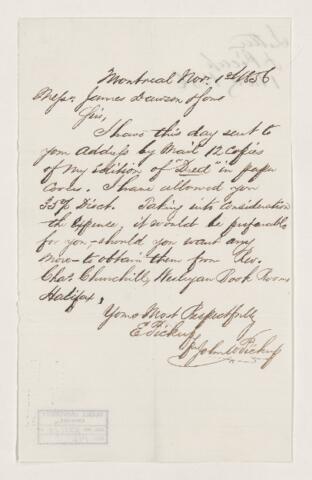 Montreal Nov. 1st 1856
Messrs. James Dawson & Sons
Sir,
I have this day sent to
your address by Mail 12 Copies
of my edition of "Dred" in paper
Covers. I have allowed you
35% Disct. Taking into Consideration
the expence, it would be preferable
for you – should you want any
more – to obtain them from Rev.
Chas. Churchill, Wesleyan Book Room
Halifax,
Yours Most Respectfully
E Pickup
John W Pickup